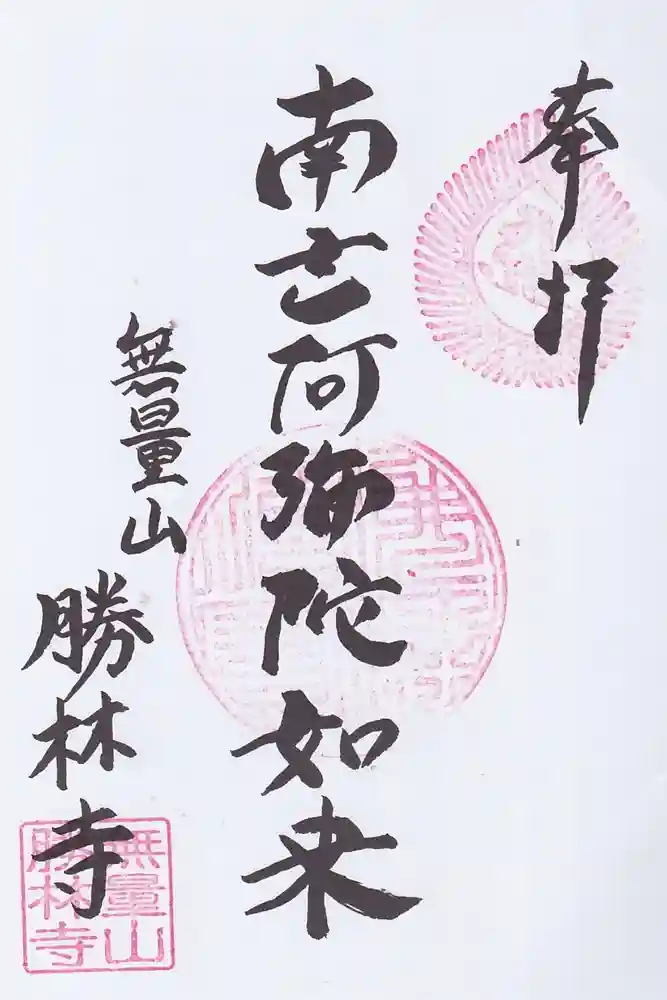 奉拝
南无阿弥陀如来
無量山
勝林寺
無量山
勝林寺